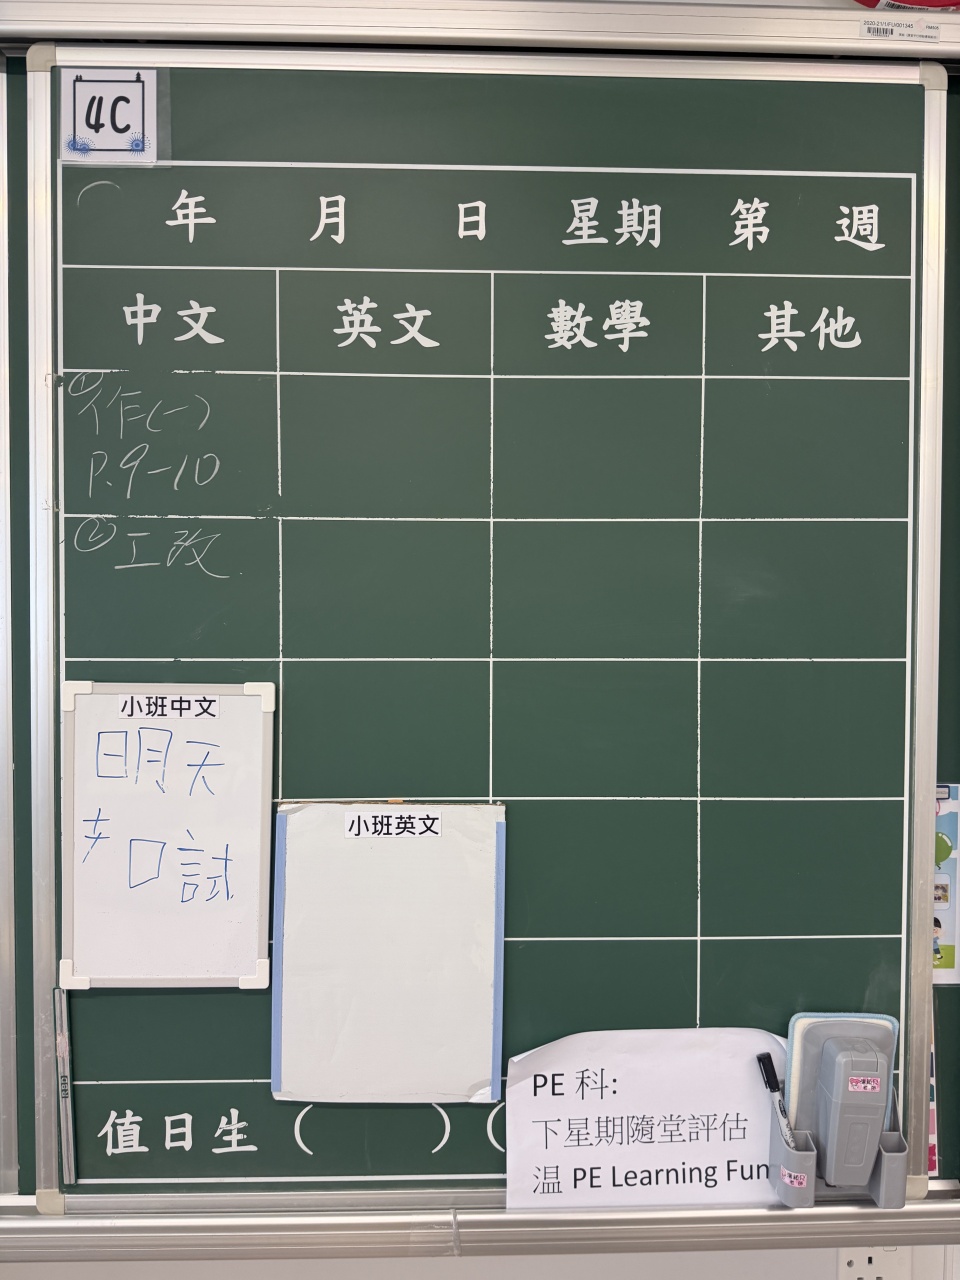 2020-21/1/FU/001345
4C
年 月 日 星期 第 週
中文 英文 數學 其他
①作(一)
P.9-10
②工改
小班中文
明天
考口試
小班英文
值日生 ( ) (
PE 科:
下星期隨堂評估
温 PE Learning Fun